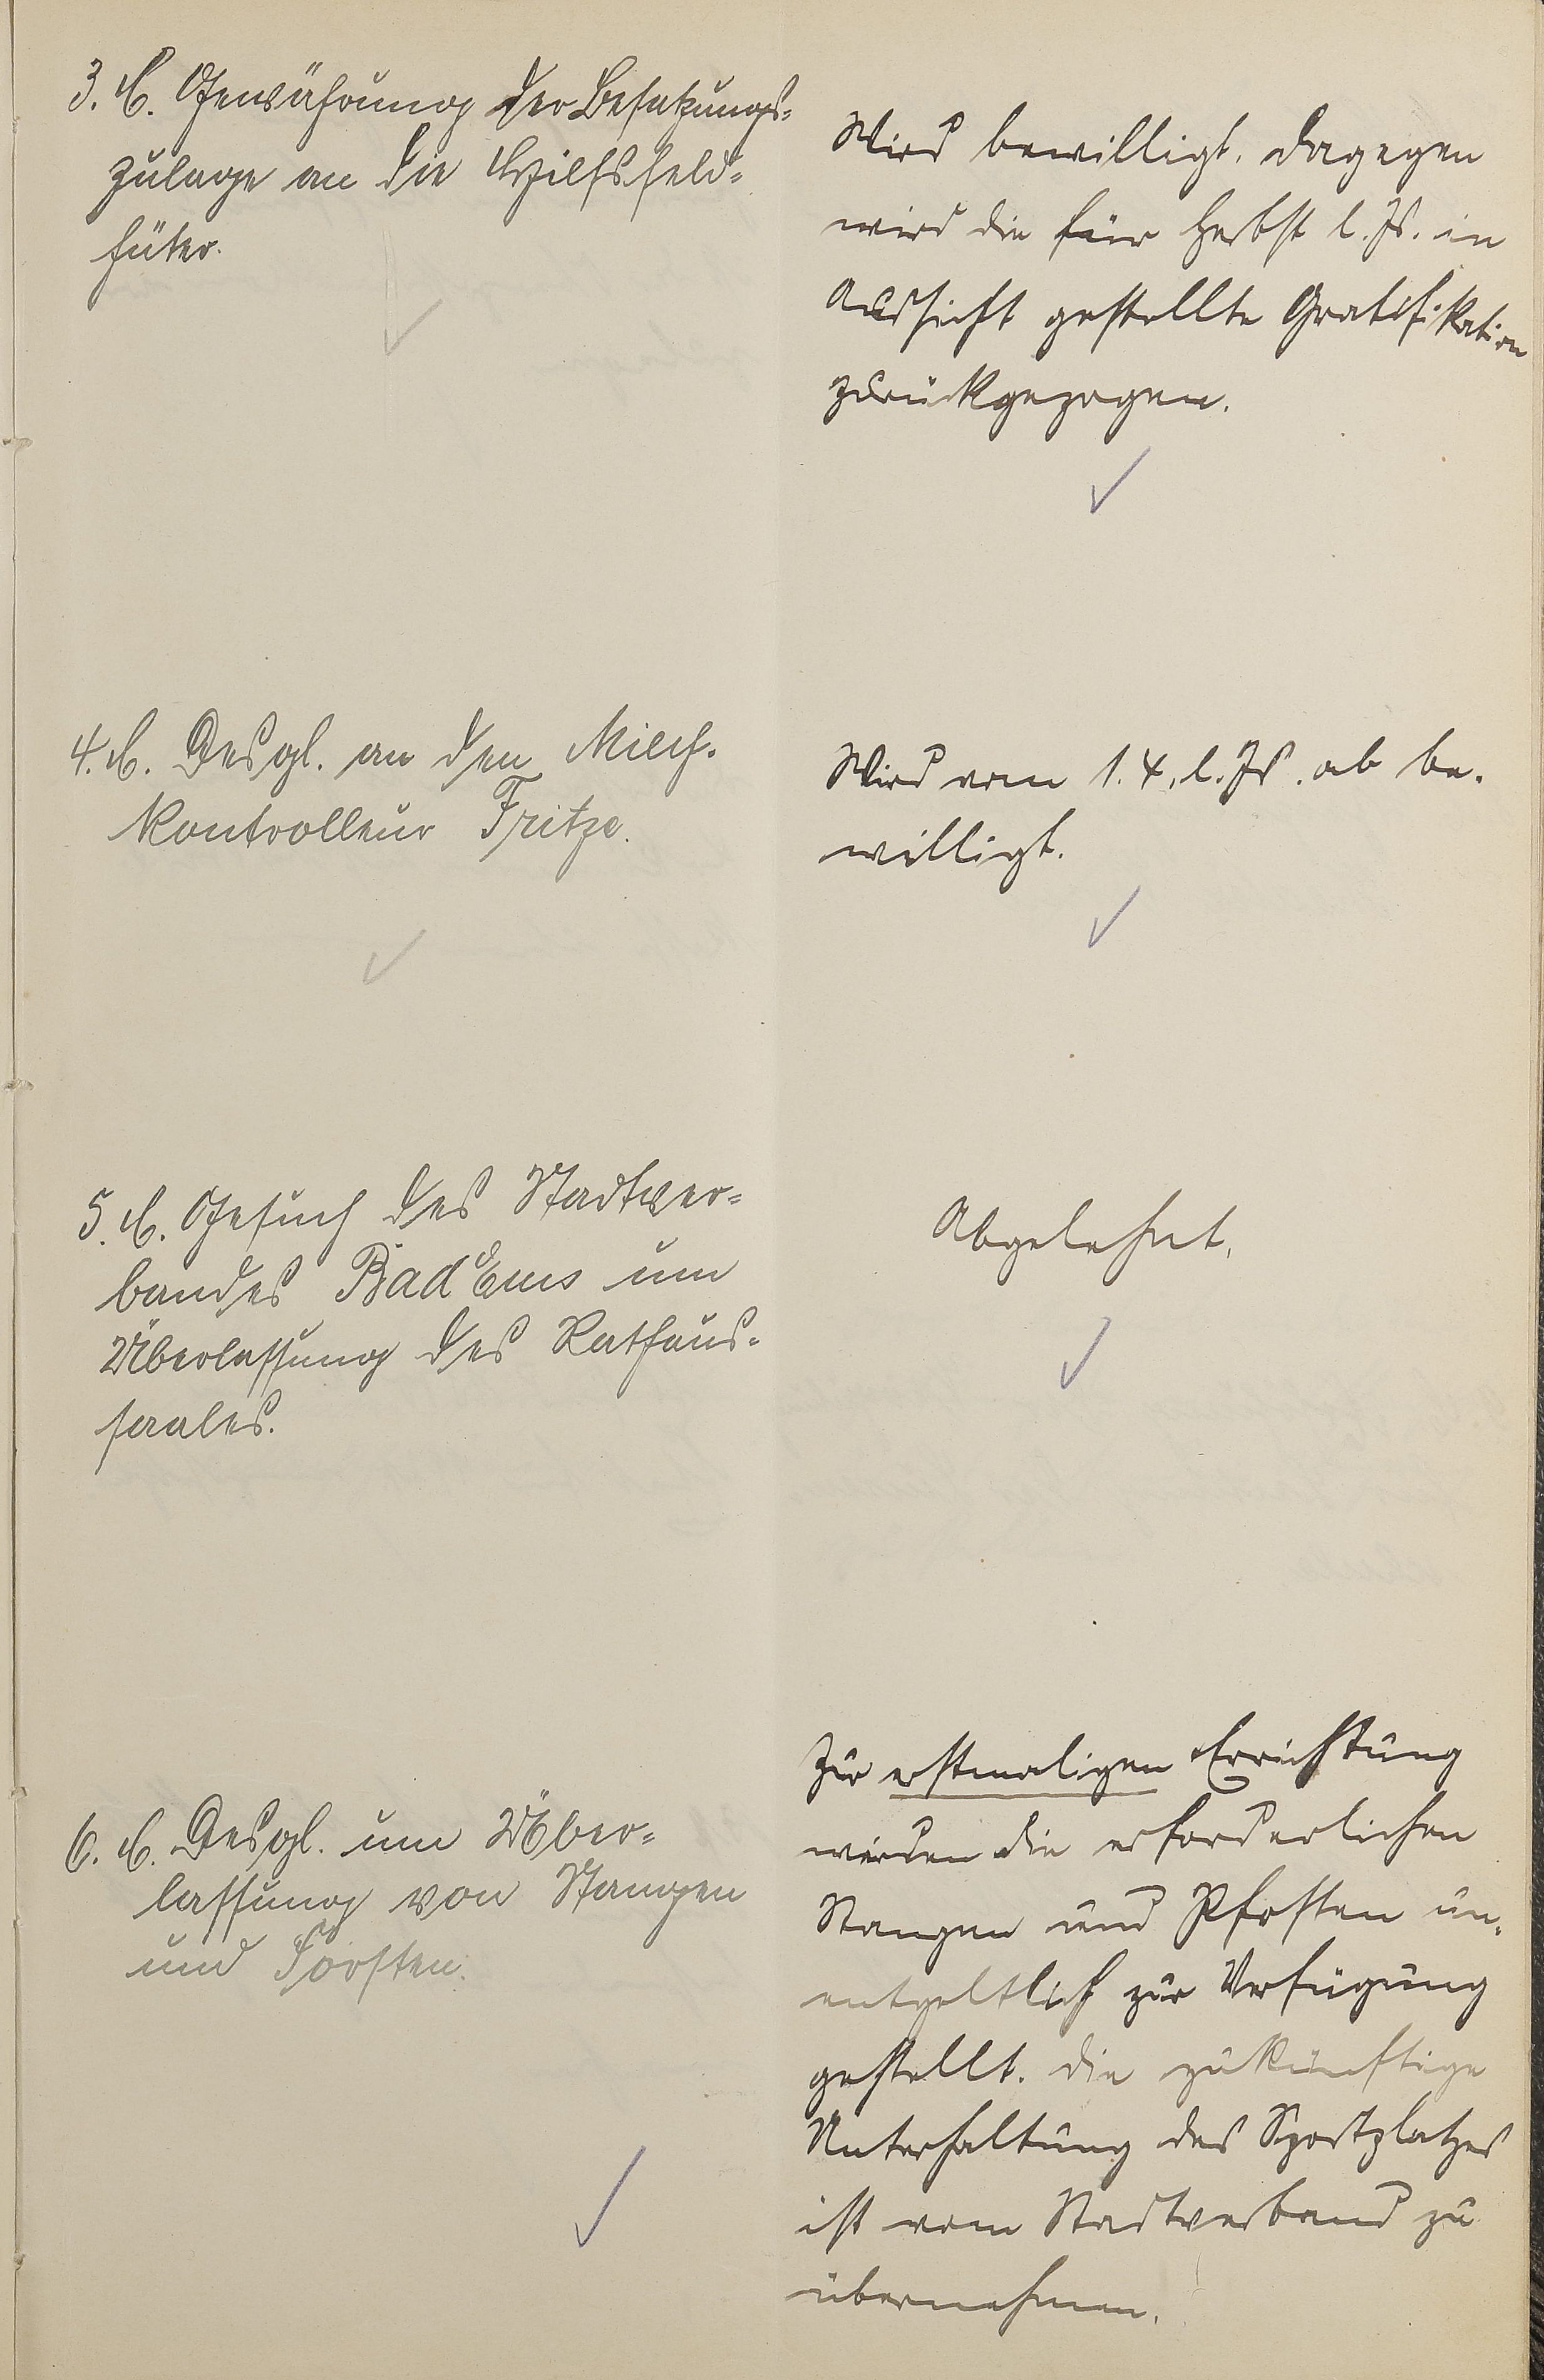 3. C. Gewährung der Besatzungs-
zulage an die Hilfsfeld-
hüter.
Wird bewilligt. Dagegen
wird die für Herbst l. Js. in
Aussicht gestellte Gratifikation
zurückgezogen.
4. C. Desgl. an den Milch-
kontrolleur Fritze.
Wird vom 1.4. l. Js. ab be-
willigt.
5. C. Gesuch des Stadtver-
bandes Bad Ems um
Überlassung des Rathaus-
saales.
Abgelehnt.
6. C. Desgl. um Über-
lassung von Stangen
und Pfosten.
Zur erstmaligen Errichtung
werden die erforderlichen
Stangen und Pfosten un-
entgeltlich zur Verfügung
gestellt. Die zukünftige
Unterhaltung des Sportplatzes
ist vom Stadtverband zu
übernehmen.